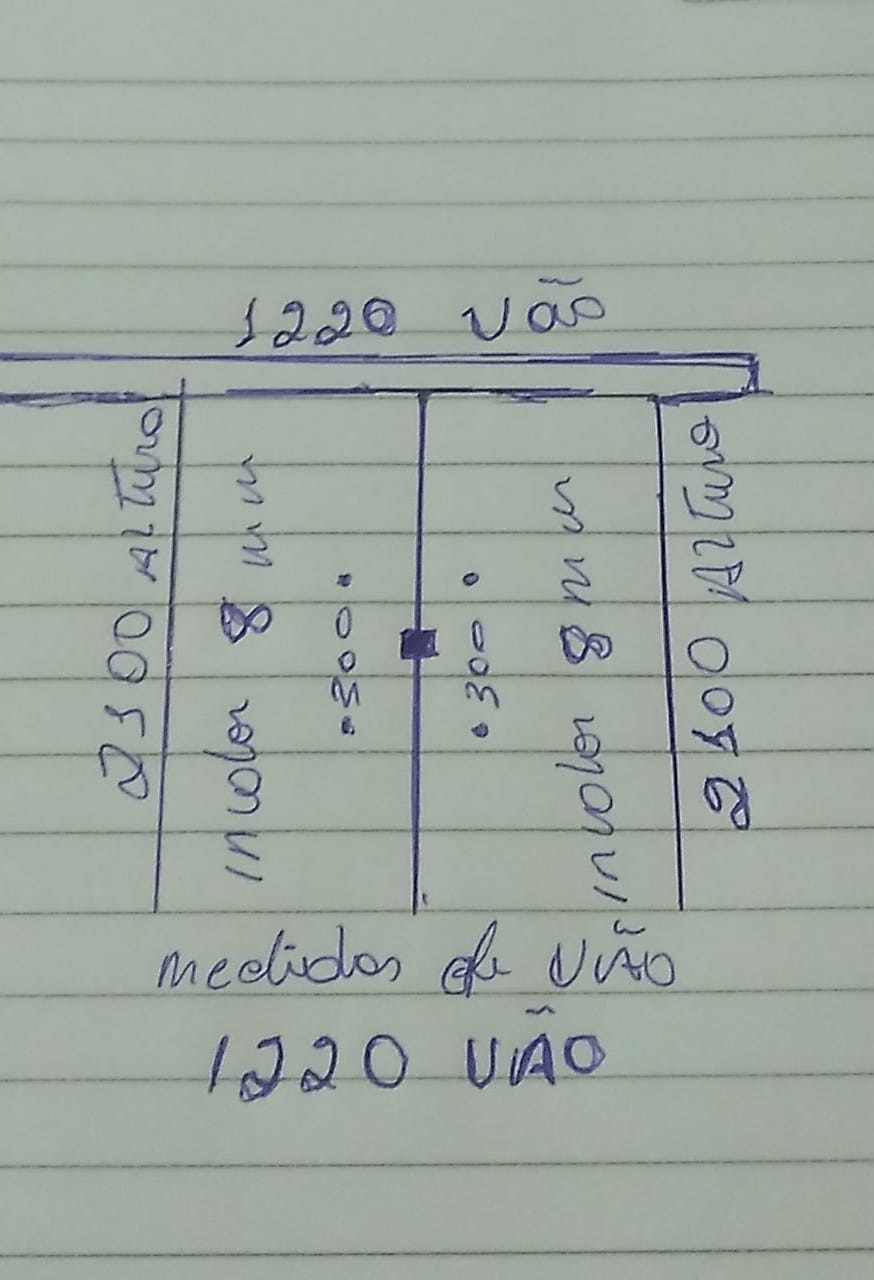 1220 vão
2100 Altura
incolor 8 mm
.300.
.300.
incolor 8 mm
2100 Altura
medidas de VÃO
1220 VÃO